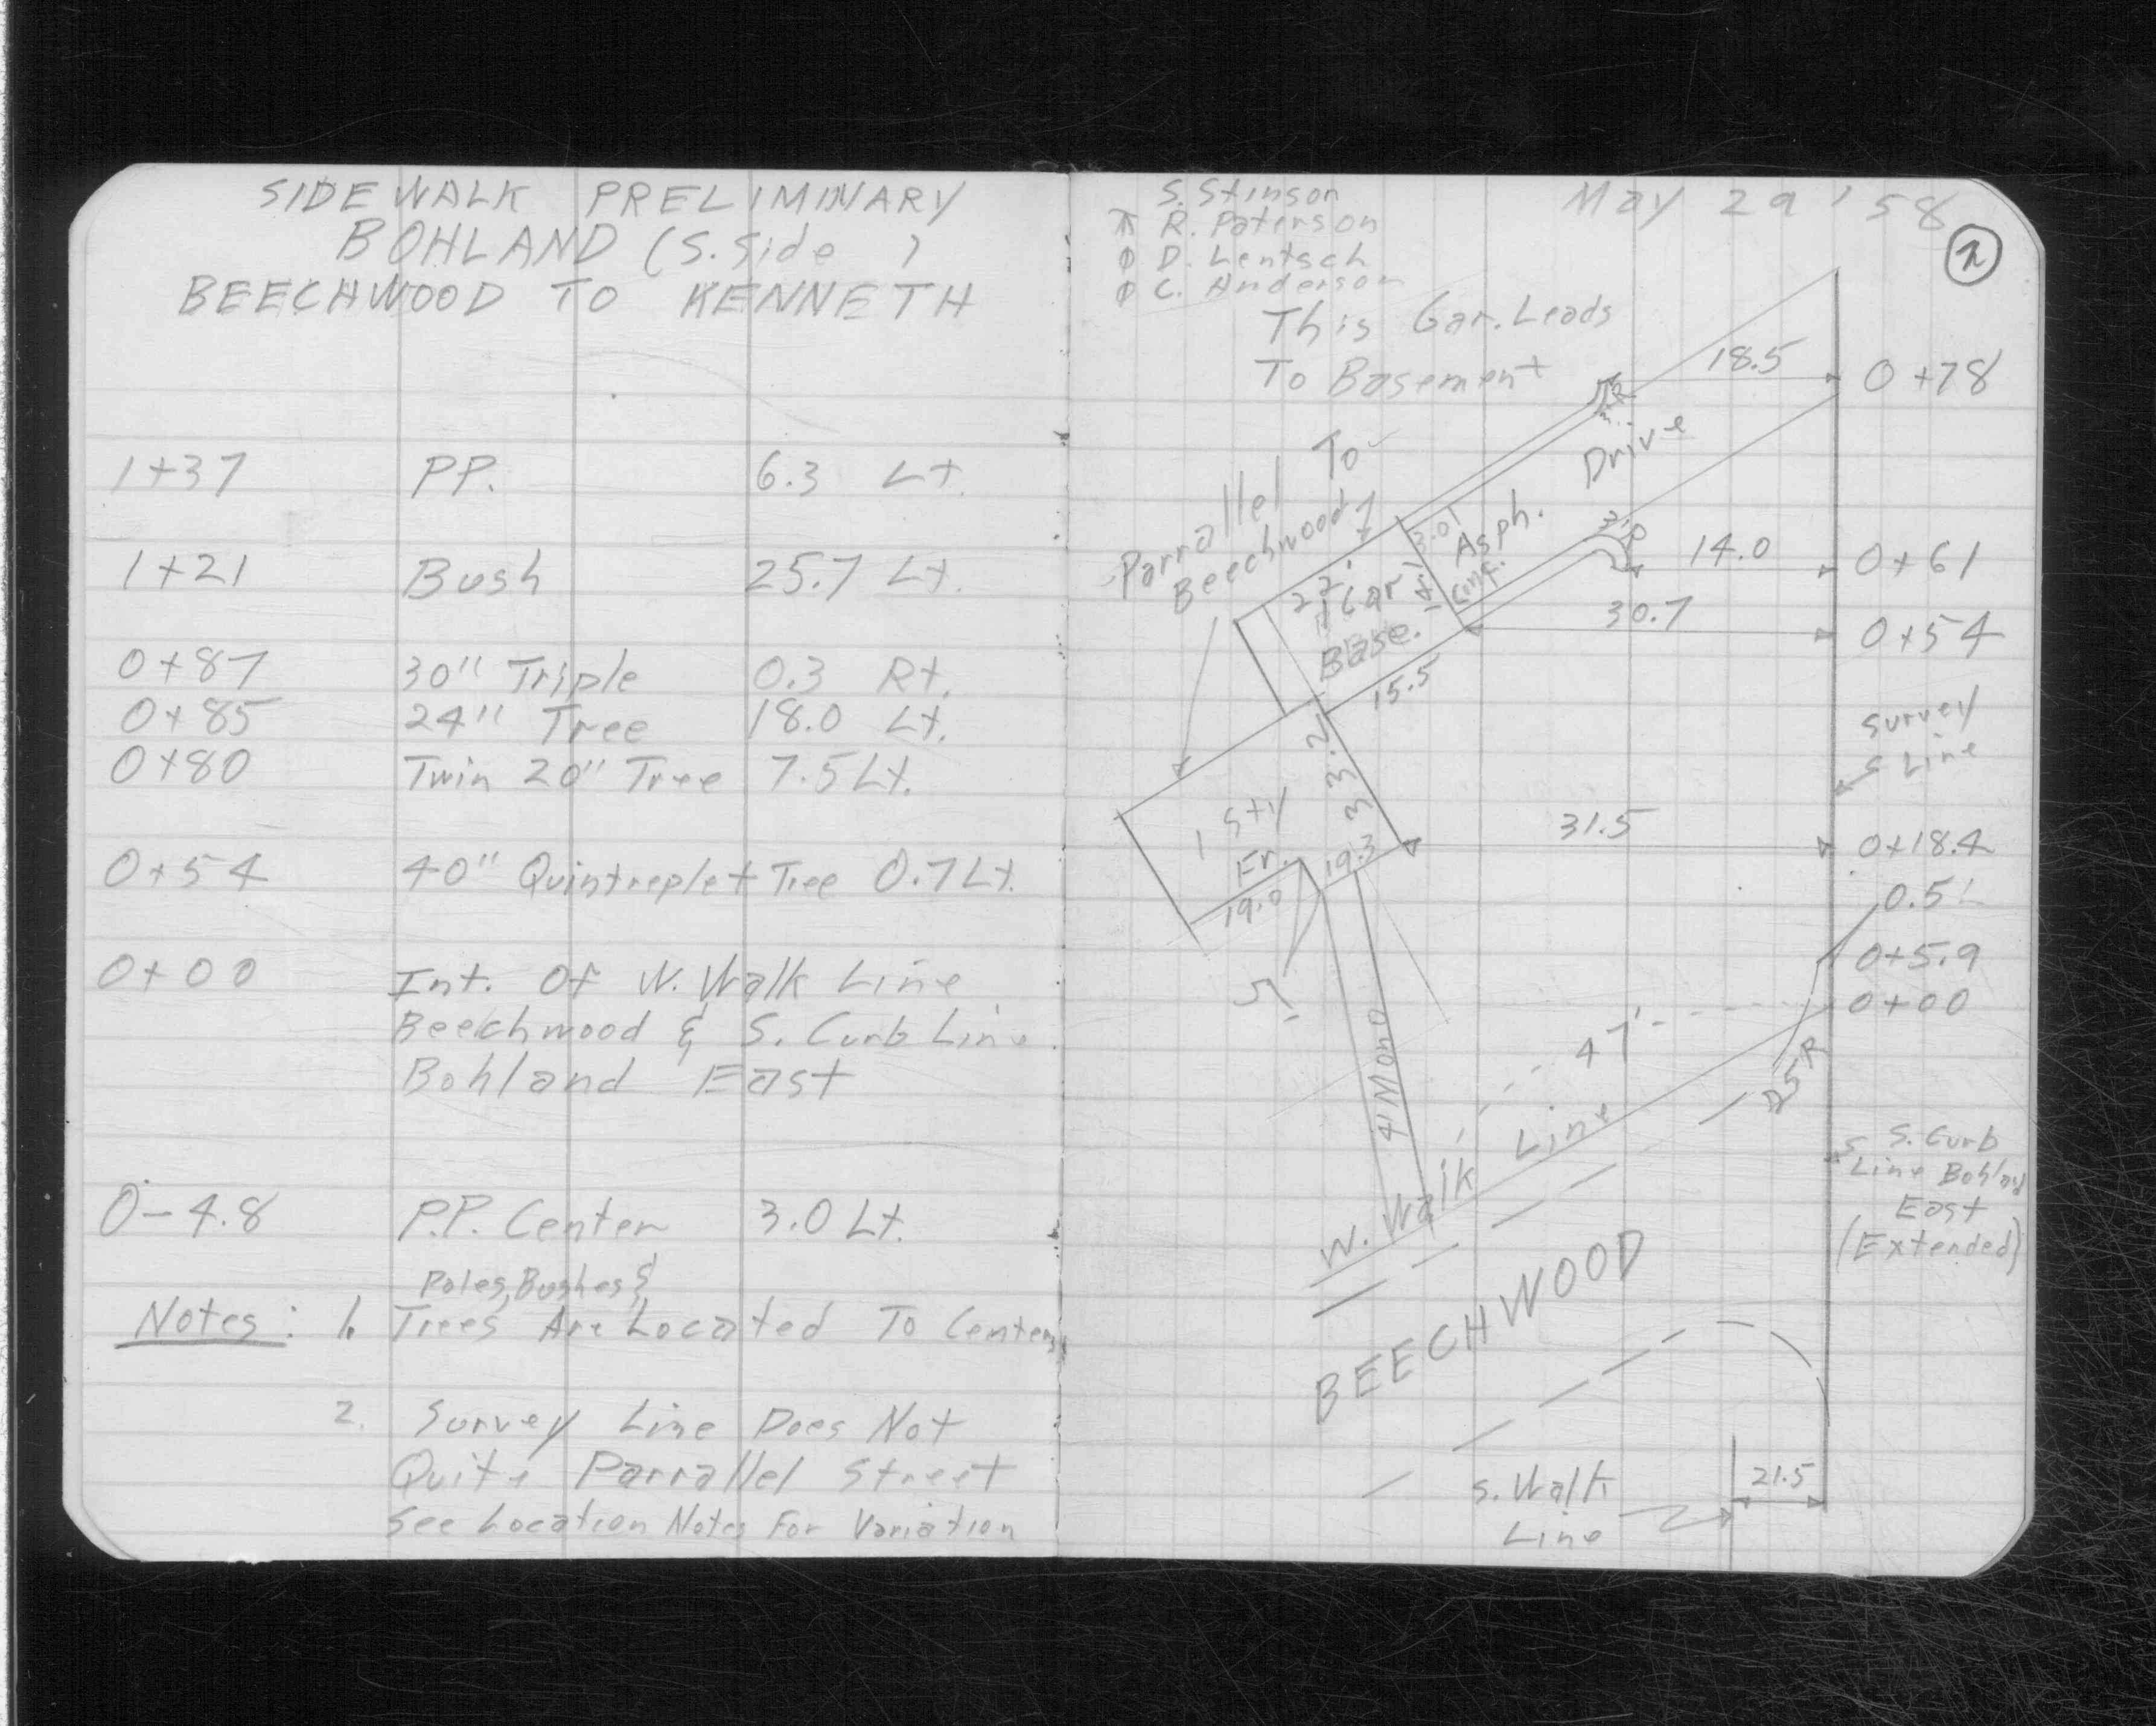 SIDEWALK PRELIMINARY
BOHLAND (S. Side )
BEECHWOOD TO KENNETH
1+37 PP. 6.3 Lt.
1+21 Bush 25.7 Lt.
0+87 30" Triple 0.3 Rt.
0+85 24" Tree 18.0 Lt.
0+80 Twin 20" Tree 7.5 Lt.
0+54 40" Quintreplet Tree 0.7 Lt.
0+00 Int. Of W. Walk Line
Beechwood & S. Curb Line
Bohland East
0-4.8 P.P. Center 3.0 Lt.
Poles, Bushes &
Notes: 1. Trees Are Located To Center
2. Survey Line Does Not
Quite Parrallel Street
See Location Notes For Variation
S. Stinson
R. Paterson
D. Lentsch
C. Anderson
May 29 '58
This Gar. Leads
To Basement
18.5
0+78
Drive
Parrallel To
Beechwood
3.0
Asph.
2'R
14.0
0+61
22'
1 Car
Base.
30.7
0+54
15.5
Survey
Line
33.2
1 Sty
Fr.
19.3
31.5
0+18.4
19.0
0.5
0+5.9
0+00
5'
4' Mono
47'
25R
W. Walk Line
S. Curb
Line Bohland
East
(Extended)
BEECHWOOD
S. Walk
Line
21.5